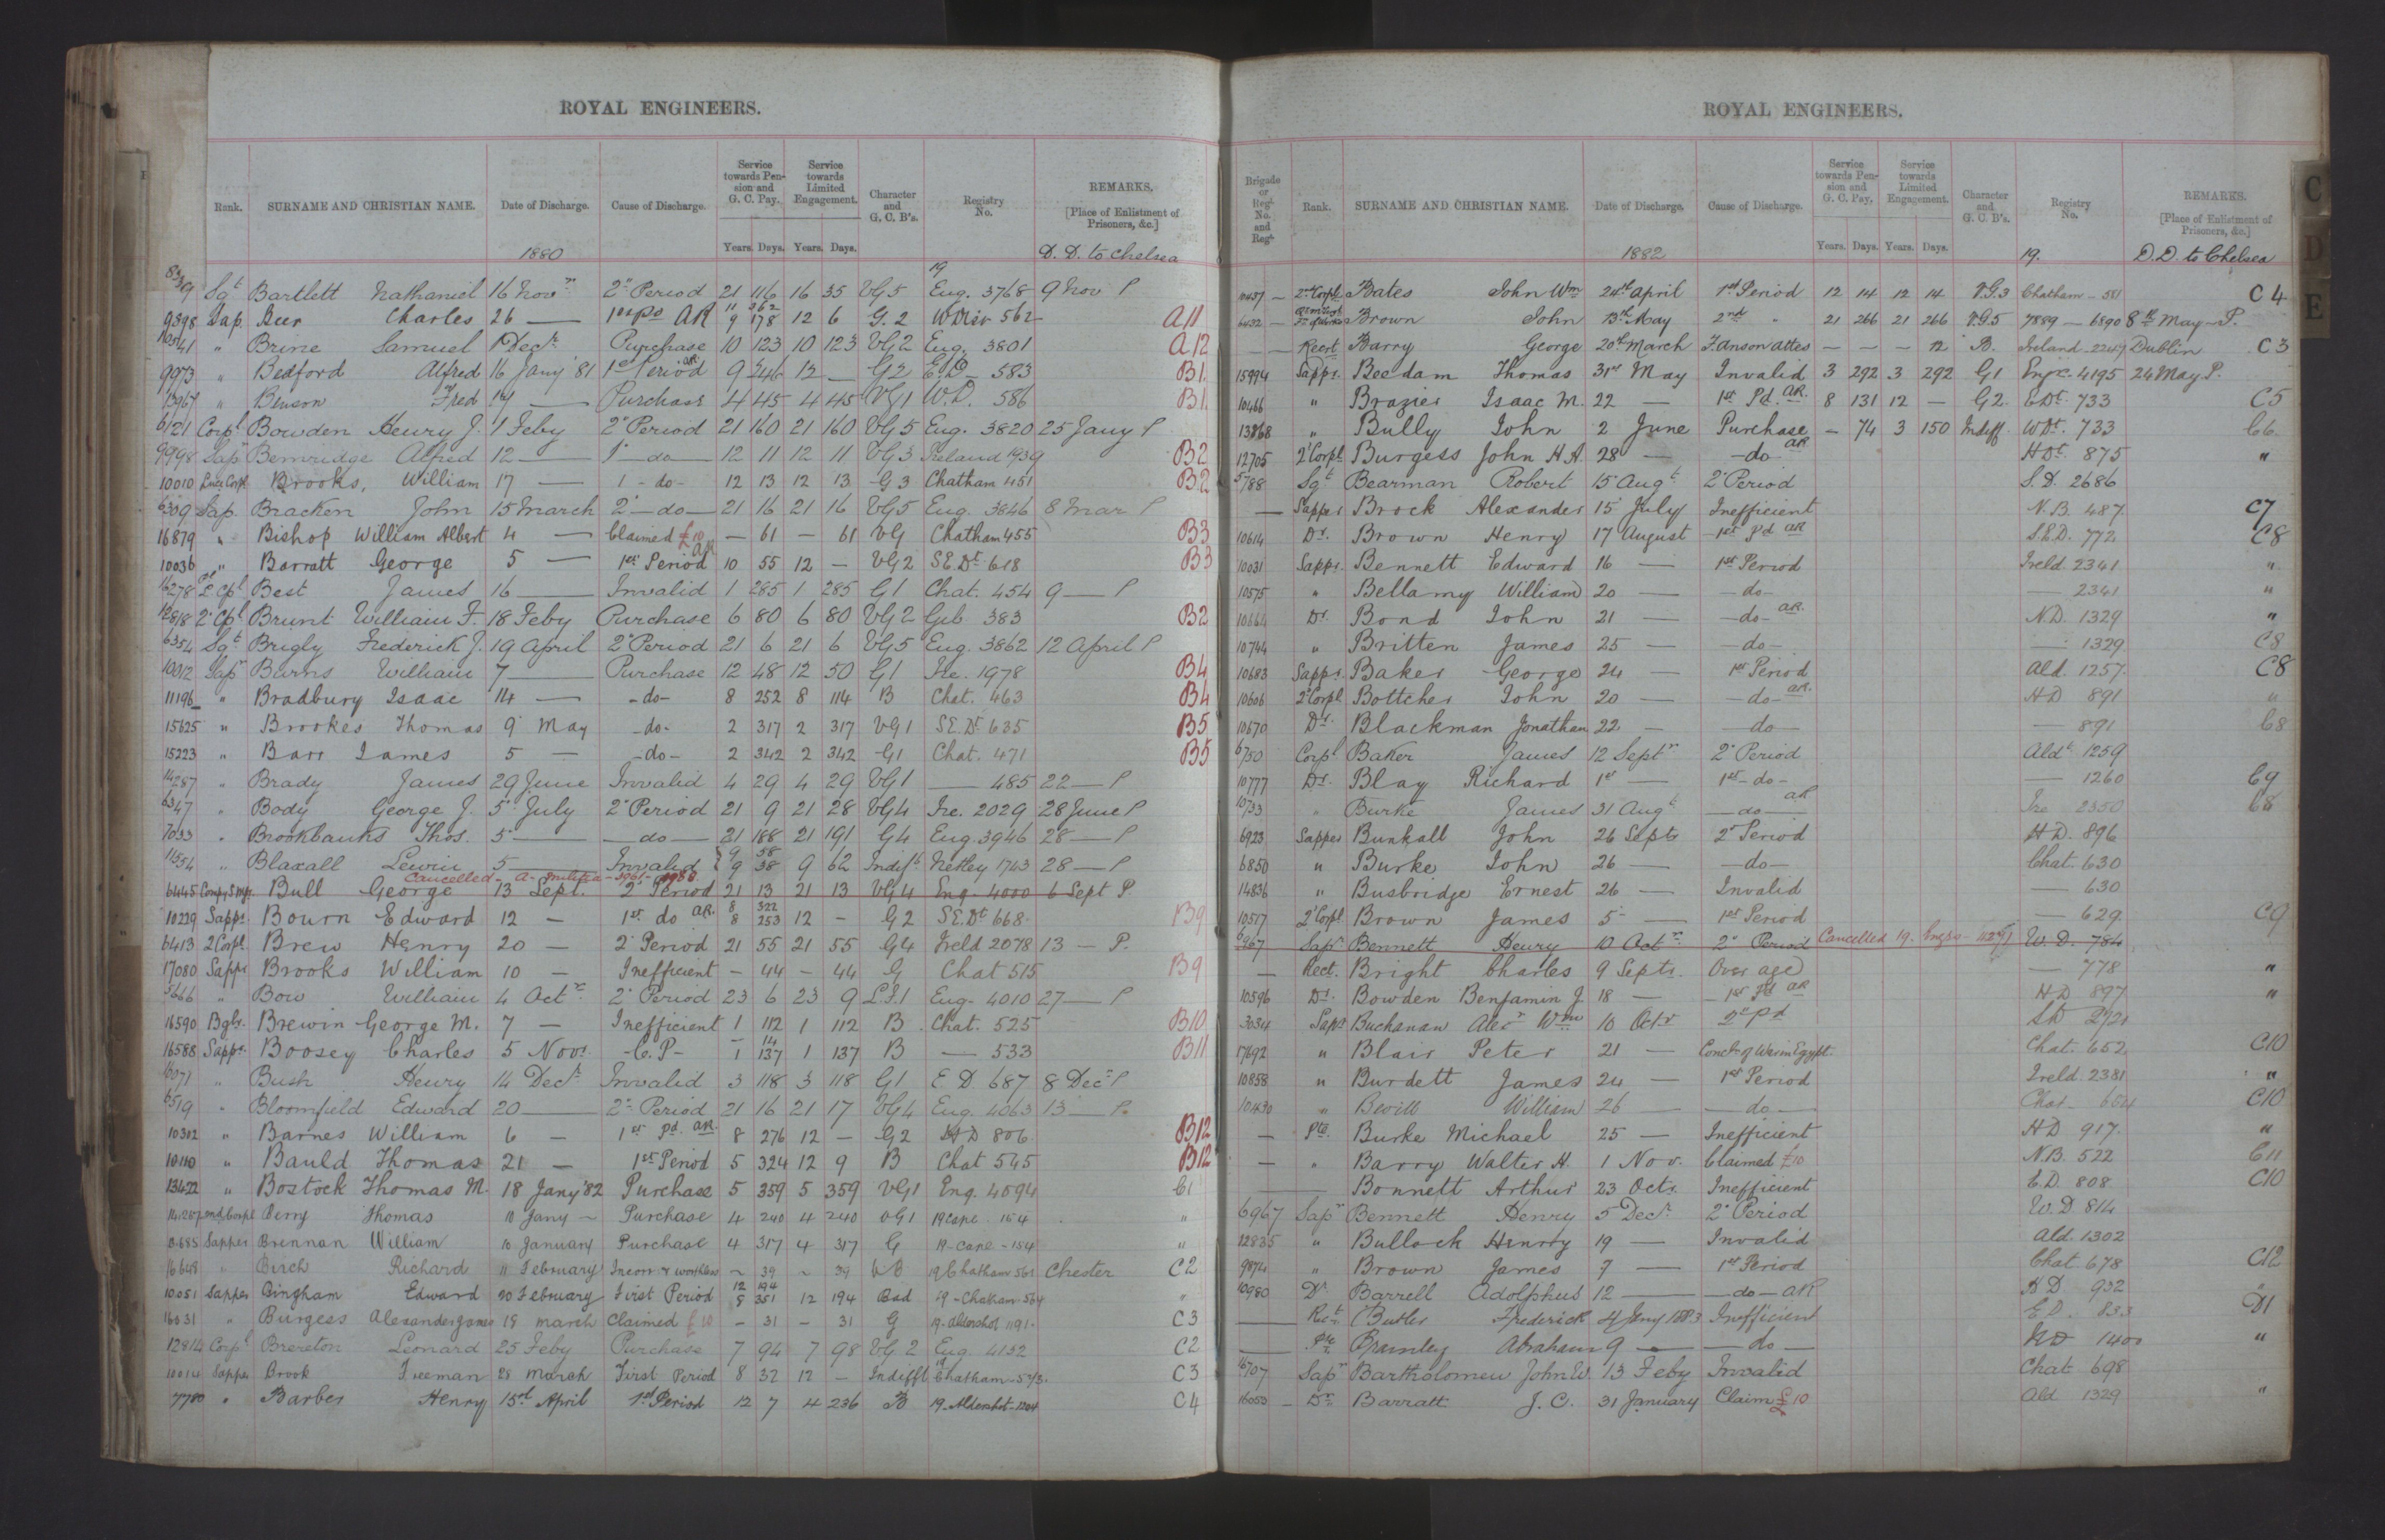 ROYAL ENGINEERS.
Rank. SURNAME AND CHRISTIAN NAME. Date of Discharge. Cause of Discharge. Service towards Pension and G. C. Pay. Service towards Limited Engagement. Character and G. C. B's. Registry No. REMARKS. [Place of Enlistment of Prisoners, &c.]
Years. Days. Years. Days.
1880 19 D. D. to Chelsea
Sgt Bartlett Nathaniel 16 Novr 2d Period 21 116 16 35 VG5 Eng. 3768 9 Nov P
9398 Sap Beer Charles 26 — AR 11 362 9 178 12 6 G.2 562 A11
" Brine Samuel 1 Decr Purchase 10 123 10 123 VG2 Eng. 3801 A12
9973 " Bedford Alfred 16 Jany '81 1st Period AR 9 246 12 — G2 E.D. 583 B1.
" Benson Fred 14 — Purchase 4 45 4 45 VG1 W.D. 586 B1.
6121 Corpl Bowden Henry J. 1 Feby 2d Period 21 160 21 160 VG5 Eng. 3820 25 Jany P
9998 Sapr Bemridge Alfred 12 — 1 do 12 11 12 11 VG3 Ireland 1939 B2
10010 Lce Corpl Brooks, William 17 — 1 - do - 12 13 12 13 G3 Chatham 451 B2
6309 Sap. Bracken John 15 March 2d do 21 16 21 16 VG5 Eng. 3846 8 Mar P
16879 " Bishop William Albert 4 — Claimed £10 — 61 — 61 VG Chatham 455 B3
10036 " Barratt George 5 — 1st Period AR 10 55 12 — VG2 S.E.Dt 618 B3
16278 2d Cpl Best James 16 — Invalid 1 285 1 285 G1 Chat. 454 9 — P
12818 2d Cpl Brunt William F. 18 Feby Purchase 6 80 6 80 VG2 Gib 383 B2
6354 Sgt Brigly Frederick J. 19 April 2d Period 21 6 21 6 VG5 Eng. 3862 12 April P
10012 Sapr Burns William 7 — Purchase 12 48 12 50 G1 Ire. 1978 B4
11196 " Bradbury Isaac 14 — - do - 8 252 8 114 B Chat. 463 B4
15625 " Brookes Thomas 9 May - do - 2 317 2 317 VG1 S.E.Dt. 635 B5
15223 " Barr James 5 — - do - 2 342 2 342 G1 Chat. 471 B5
14287 " Brady James 29 June Invalid 4 29 4 29 VG1 — 485 22 — P
6347 " Body George J. 5 July 2d Period 21 9 21 28 VG4 Ire. 2029 28 June P
7033 " Brookbanks Thos. 5 — do 21 188 21 191 G4 Eng. 3946 28 — P
" Blaxall Lewin 5 — Invalid 9 58 9 38 9 62 Indift Netley 1743 28 — P
Cancelled - A - Militia - 3961 -
6445 Bull George 13 Sept. 2d Period 21 13 21 13 VG4 Eng. 4000 6 Sept P.
10229 Sappr. Bourn Edward 12 — 1st do AR. 8 322 8 253 12 — G2 S.E.Dt 668. B9
6413 2 Corpl Brew Henry 20 — 2d Period 21 55 21 55 G4 Ireld 2078 13 — P.
17080 Sappr Brooks William 10 — Inefficient — 44 — 44 G Chat 515 B9
5646 " Bow William 4 Octr 2d Period 23 6 23 9 Eng. 4010 27 — P
16590 Bglr. Brewin George M. 7 — Inefficient 1 112 1 112 B. Chat. 525 B10
16588 Sappr. Boosey Charles 5 Novr. -C.P- — 14 1 137 1 137 B — 533 B11
" Bush Henry 14 Decr Invalid 3 118 3 118 G1 E.D 687 8 Decr P
6519 " Bloomfield Edward 20 — 2d Period 21 16 21 17 VG4 Eng. 4063 13 — P.
10302 " Barnes William 6 — 1st Pd. AR. 8 276 12 — G2 H D 806. B12
10110 " Bauld Thomas 21 — 1st Period 5 324 12 9 B Chat 545 B12
13422 " Bostock Thomas M. 18 Jany '82 Purchase 5 359 5 359 VG1 Eng. 4094 C1
Berry Thomas 10 Jany — Purchase 4 240 4 240 VG1 19 Cape 154 "
Sapper Brennan William 10 January Purchase 4 317 4 317 G 19 - Cape - 154 "
16648 " Birch Richard 11 February Incorr & worthless — 39 — 39 19 Chatham 561 Chester C2
10051 Sapper Bingham Edward 20 February First Period 12 194 5 351 12 194 Bad 19 - Chatham 564 "
16031 " Burgess Alexander James 18 March Claimed £10 — 31 — 31 G 19 - Aldershot 1191 - C3
12814 Corpl Brereton Leonard 25 Feby Purchase 7 94 7 98 VG 2 Eug. 4132 C2
Sapper Brook Freeman 28 March First Period 8 32 12 — Indifft Chatham C3
7780 " Barber Henry 15th April 1st Period 12 7 4 236 B 19. Aldershot 1204 C4
ROYAL ENGINEERS.
Brigade or Regl No. and Regt Rank. SURNAME AND CHRISTIAN NAME. Date of Discharge. Cause of Discharge. Service towards Pension and G. C. Pay. Service towards Limited Engagement. Character and G. C. B's. Registry No. REMARKS. [Place of Enlistment of Prisoners, &c.]
Years. Days. Years. Days.
1882 19. D.D. to Chelsea
2nd Corpl Bates John Wm 24th April 1st Period 12 14 12 14 V.G.3 Chatham — 581 C4
Brown John 13th May 2nd " 21 266 21 266 V.G.5 7889 — 6890 8th May — P.
— Recrt Barry George 20th March F. anson attes — — — 12 B. Ireland - 2247 Dublin C3
15994 Sappr. Beedam Thomas 31st May Invalid 3 292 3 292 G1 Engr. 4195 24 May P.
10466 " Brazier Isaac M. 22 — 1st Pd. AR. 8 131 12 — G2. E.Dt. 733 C5
13868 " Bully John 2 June Purchase — 74 3 150 Indiff W.Dt. 733 C6
12705 2d Corpl. Burgess John H A 28 — - do - AR H Dt. 875 "
5788 Sgt. Bearman Robert 15 Augt. 2d Period S.D. 2686
— Sapper Brock Alexander 15 July Inefficient N.B. 487 C7
10614 Dr. Brown Henry 17 August 1st Pd AR S.E.D. 772 C8
10031 Sappr. Bennett Edward 16 — 1st Period Ireld 2341 "
10575 " Bellamy William 20 — - do - — 2341 "
10661 Dr. Bond John 21 — - do - AR. N.D. 1329 "
10744 " Britten James 25 — - do - — 1329 C8
10683 Sappr. Baker George 24 — 1st Period Ald. 1257 C8
10606 2d Corpl. Bottcher John 20 — - do - AR. H D 891 "
10670 Dr. Blackman Jonathan 22 — do — 891 C8
6750 Corpl Baker James 12 Septr 2d Period Aldt 1259
10777 Dr. Blay Richard 1st — 1st - do - — 1260 C9
10733 " Burke James 31 Augt — do — AR Ire 2350 C8
6923 Sapper Bunkall John 26 Septr 2d Period H D. 896
6850 " Burke John 26 — — do — Chat. 630
14836 " Busbridge Ernest 26 — Invalid — 630
10517 2d Corpl. Brown James 5 — 1st Period — 629 C9
6967 Sapr Bennett Henry 10 Octr 2d Period Cancelled 19. Engrs - W. D. 784
— Rect. Bright Charles 9 Septr. Over age — 778 "
10596 Dr. Bowden Benjamin J. 18 — 1st Pd AR H D 897 "
3034 Sapr Buchanan Alexr Wm 10 Octr 2d Pd S D 2721
17692 " Blair Peter 21 — Concln of War in Egypt. Chat. 652 C10
10858 " Burdett James 24 — 1st Period Ireld. 2381 "
10430 " Bevill William 26 — — do — Chat — 654 C10
— Pte. Burke Michael 25 — Inefficient H D 917. "
— " Barry Walter H. 1 Nov. Claimed £10 N.B. 522 C11
— Bonnett Arthur 23 Octr. Inefficient E.D. 808 C10
6967 Sapr Bennett Henry 5 Decr. 2d Period W.D 814
12835 " Bullock Henry 19 — Invalid Ald. 1302
9874 " Brown James 7 — 1st Period Chat 678 C12
10980 Dr Barrell Adolphus 12 — — do — AR H D 932 "
— Rect Butler Frederick 4 Jany 1883 Inefficient E.D. 833 D1
— Pte Bramley Abraham 9 — — do — 1400 "
16707 Sapr Bartholomew John W. 13 Feby Invalid Chat 698
16053 — Dr Barratt J. C. 31 January Claim £10 Ald 1329 "
C
D
E